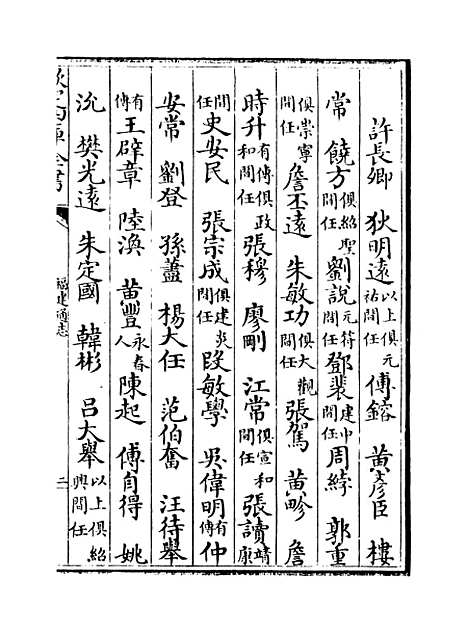 許長卿 狄明遠以上俱元祐間任 傅鎔 黃彥臣 樓
常 饒方俱紹聖間任 劉說元符間任 鄧裴建中間任 周綍 郭重
俱崇寧間任 詹丕遠 朱敏功俱大觀間任 張駕 黃畛 詹
時升有傳俱政和間任 張穆 廖剛 江常俱宣和間任 張讀靖康
間任 史安民 張宗成俱建炎間任 段敏學 吳偉明有傳 仲
安常 劉登 孫藎 楊大任 范伯奮 汪待舉
有傳 王辟章 陸渙 苗豐永春人 陳起 傅自得 姚
沇 樊光遠 朱定國 韓彬 吕大舉以上俱紹興間任
欽定四庫全書
福建通志
二